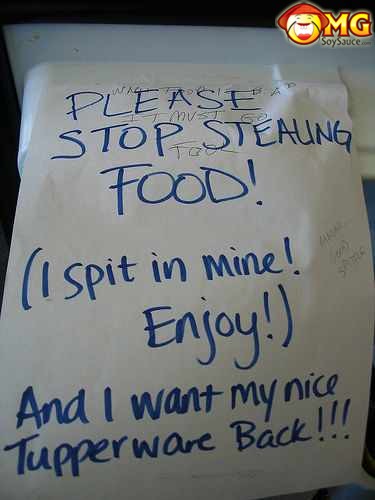 OMG
SoySauce.com
PLEASE
IT MUST GO
STOP STEALING
TOO
FOOD!
(I spit in mine!
Enjoy!)
And I want my nice
Tupperware Back!!!